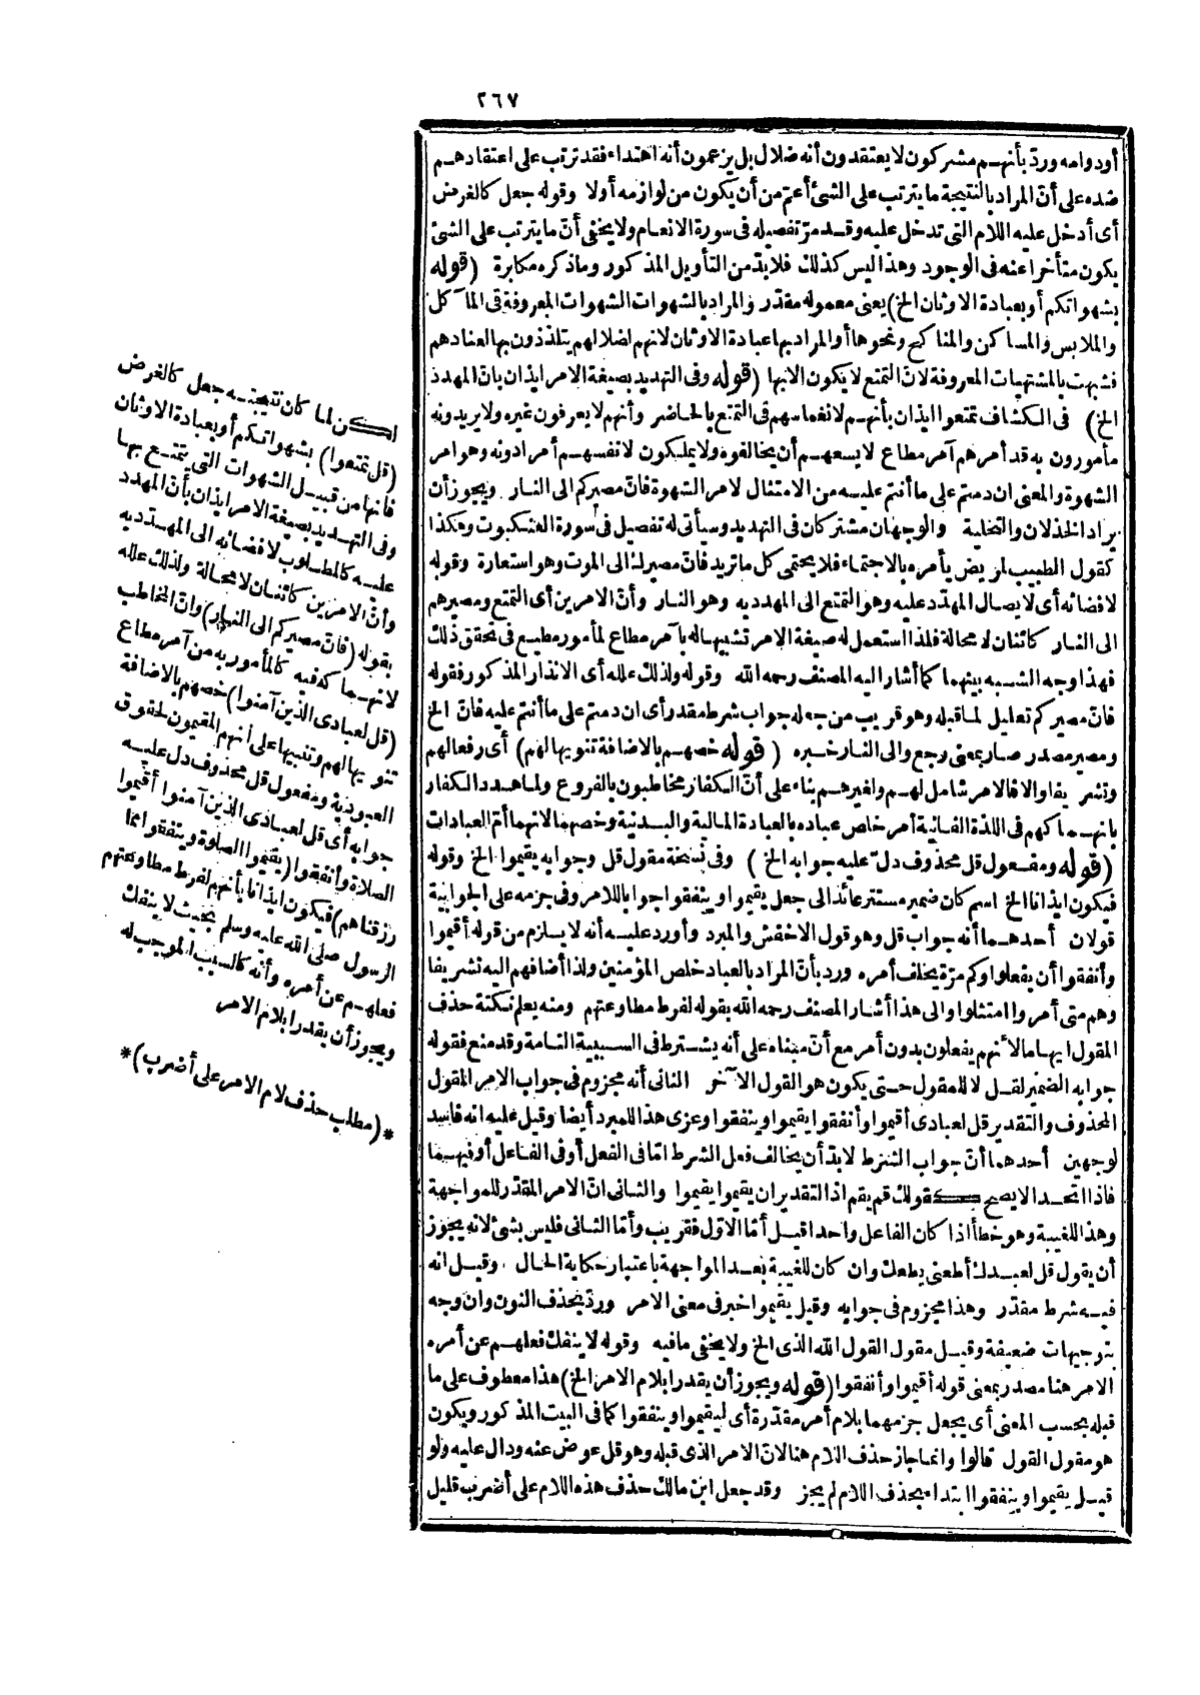 ٢٦٧
أودوامه وردّ بأنهم مشركون لا يعتقدون أنه ضلال بل يزعمون أنه اهتداء فقد ترتب على اعتقادهم
ضده على أنّ المراد بالنتيجة ما يترتب على الشئ أعم من أن يكون من لوازمه أولا وقوله جعل كالغرض
أى أدخل عليه اللام التى تدخل عليه وقد مرّ تفصيله فى سورة الانعام ولا يخفى أنّ ما يترتب على الشئ
يكون متأخرا عنه فى الوجود وهذا ليس كذلك فلابدّ من التأويل المذكور وماذكره مكابرة (قوله
بشهواتكم أو بعبادة الاوثان الخ) يعنى معموله مقدّر والمراد بالشهوات الشهوات المعروفة فى المآكل
والملابس والمساكن والمناكح ونحوها أو المراد بها عبادة الاوثان لانهم لضلالهم يتلذذون بها لعنادهم
فشبهت بالمشتهيات المعروفة لانّ التمتع لا يكون الابها (قوله وفى التهديد بصيغة الامر ايذان بانّ المهدد
الخ) فى الكشاف تمتعوا ايذان بأنهم لانغماسهم فى التمتع بالحاضر وأنهم لا يعرفون غيره ولا يريدونه
مأمورون به قد أمرهم آمر مطاع لا يسعهم أن يخالفوه ولا يملكون لانفسهم أمرا دونه وهو امر
الشهوة والمعنى ان دمتم على ما أنتم عليه من الامتثال لامر الشهوة فانّ مصيركم الى النار ويجوز أن
يراد الخذلان والتخلية والوجهان مشتركان فى التهديد وسيأتى له تفصيل فى سورة العنكبوت وهكذا
كقول الطبيب لمريض يأمره بالاحتماء فلا يحتمى كل ما تريد فانّ مصيرك الى الموت وهو استعارة وقوله
لافضائه أى لايصال المهدّد عليه وهو التمتع الى المهدد به وهو النار وأنّ الامرين أى التمتع ومصيرهم
الى النار كائنان لا محالة فلذا استعمل له صيغة الامر تشبيها له بآمر مطاع لمأمور مطيع فى تحقق ذلك
فهذا وجه الشبه بينهما كما أشار اليه المصنف رحمه الله وقوله ولذلك علله أى الانذار المذكور فقوله
فانّ مصيركم تعليل لما قبله وهو قريب من جعله جواب شرط مقدر أى ان دمتم على ما أنتم عليه فانّ الخ
ومصير مصدر صار بمعنى رجع والى النار خبره (قوله خصهم بالاضافة تنويها لهم) أى رفعا لهم
وتشريفا والا فالامر شامل لهم ولغيرهم بناء على أنّ الكفار مخاطبون بالفروع ولما هدد الكفار
بانهماكهم فى اللذة الفانية أمر خاص عباده بالعبادة المالية والبدنية وخصهما لانهما أمّ العبادات
(قوله ومفعول قل محذوف دلّ عليه جوابه الخ) وفى نسخة مقول قل وجوابه يقيموا الخ وقوله
فيكون ايذانا الخ اسم كان ضمير مستتر عائد الى جعل يقيموا وينفقوا جوابا للامر وفى جزمه على الجوابية
قولان أحدهما أنه جواب قل وهو قول الاخفش والمبرد وأورد عليه أنه لا يلزم من قوله أقيموا
وأنفقوا أن يفعلوا وكم مرّة يخلف أمره وردّ بأنّ المراد بالعباد خلص المؤمنين ولذا أضافهم اليه تشريفا
وهم متى أمروا امتثلوا والى هذا أشار المصنف رحمه الله بقوله لفرط مطاوعتهم ومنه يعلم نكتة حذف
المقول ايهاما لأنهم يفعلون بدون أمر مع أنّ مبناه على أنه يشترط فى السببية التامة وقد منع فقوله
جوابه الضمير لقل لا للمقول حتى يكون هو القول الآخر الثانى أنه مجزوم فى جواب الامر المقول
المحذوف والتقدير قل لعبادى أقيموا وأنفقوا يقيموا وينفقوا وعزى هذا للمبرد أيضا وقيل عليه انه فاسد
لوجهين أحدهما أنّ جواب الشرط لابدّ أن يخالف فعل الشرط امّا فى الفعل أو فى الفاعل أو فيهما
فاذا اتحدا لا يصح كقولك قم يقم اذ التقدير ان يقيموا يقيموا والثانى انّ الامر المقدّر للمواجهة
وهذا للغيبة وهو خطأ اذا كان الفاعل واحدا قيل أمّا الاوّل فقريب وأمّا الثانى فليس بشئ لانه يجوز
أن يقول قل لعبدك أطعنى يطعك وان كان للغيبة بعد المواجهة باعتبار حكاية الحال وقيل انه
فيه شرط مقدّر وهذا مجزوم فى جوابه وقيل يقيموا خبر فى معنى الامر وردّ بحذف النون وان وجه
بتوجيهات ضعيفة وقيل مقول القول الله الذى الخ ولا يخفى مافيه وقوله لا ينفك فعلهم عن أمره
الامر هنا مصدر بمعنى قوله أقيموا وأنفقوا (قوله ويجوز أن يقدر ا بلام الامر الخ) هذا معطوف على ما
قبله بحسب المعنى أى يجعل جزمهما بلام أمر مقدّرة أى ليقيموا وينفقوا كما فى البيت المذكور ويكون
هو مقول القول قالوا وانما جاز حذف اللام هنا لانّ الامر الذى قبله وهو قل عوض عنه ودال عليه ولو
قيل يقيموا وينفقوا ابتداء بحذف اللام لم يجز وقد جعل ابن مالك حذف هذه اللام على أضرب قليل
لكن لما كان نتيجته جعل كالغرض
(قل تمتعوا) بشهواتكم أو بعبادة الاوثان
فانها من قبيل الشهوات التى يتمتع بها
وفى التهديد بصيغة الامر ايذان بأنّ المهدد
عليه كالمطلوب لافضائه الى المهدد به
وأنّ الامرين كائنان لا محالة ولذلك علله
بقوله (فانّ مصيركم الى النار) وانّ المخاطب
لانهماكه فيه كالمأمور به من آمر مطاع
(قل لعبادى الذين آمنوا) خصهم بالاضافة
تنويها لهم وتنبيها على أنهم المقيمون لحقوق
العبودية ومفعول قل محذوف دل عليه
جوابه أى قل لعبادى الذين آمنوا أقيموا
الصلاة وأنفقوا (يقيموا الصلوة وينفقوا مما
رزقناهم) فيكون ايذانا بأنهم لفرط مطاوعتهم
الرسول صلى الله عليه وسلم بحيث لا ينفك
فعلهم عن أمره وأنه كالسبب الموجب له
ويجوز أن يقدرا بلام الامر
*(مطلب حذف لام الامر على أضرب)*